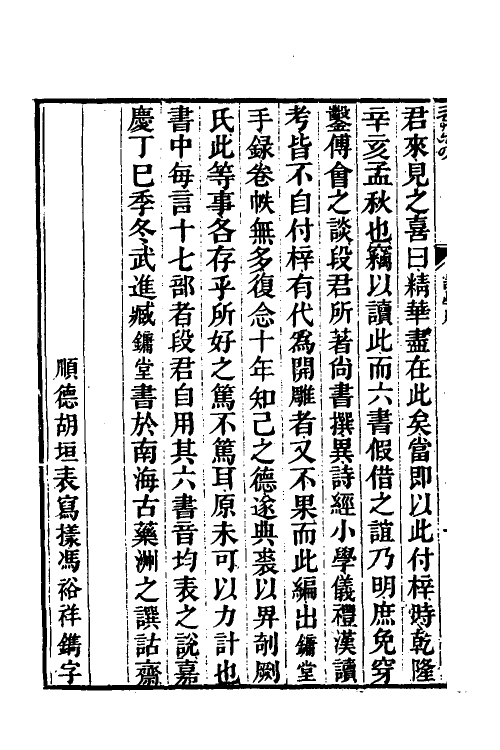 君來見之喜曰精華盡在此矣當即以此付梓時乾隆
辛亥孟秋也竊以讀此而六書假借之誼乃明庶免穿
鑿傅會之談段君所著尚書撰異詩經小學儀禮漢讀
考皆不自付梓有代為開雕者又不果而此編出鏞堂
手錄卷帙無多復念十年知己之德遂典裘以畀剞劂
氏此等事各存乎所好之篤不篤耳原未可以力計也
書中每言十七部者段君自用其六書音均表之說嘉
慶丁巳季冬武進臧鏞堂書於南海古藥洲之譔詁齋
順德胡垣表寫樣馮裕祥鐫字